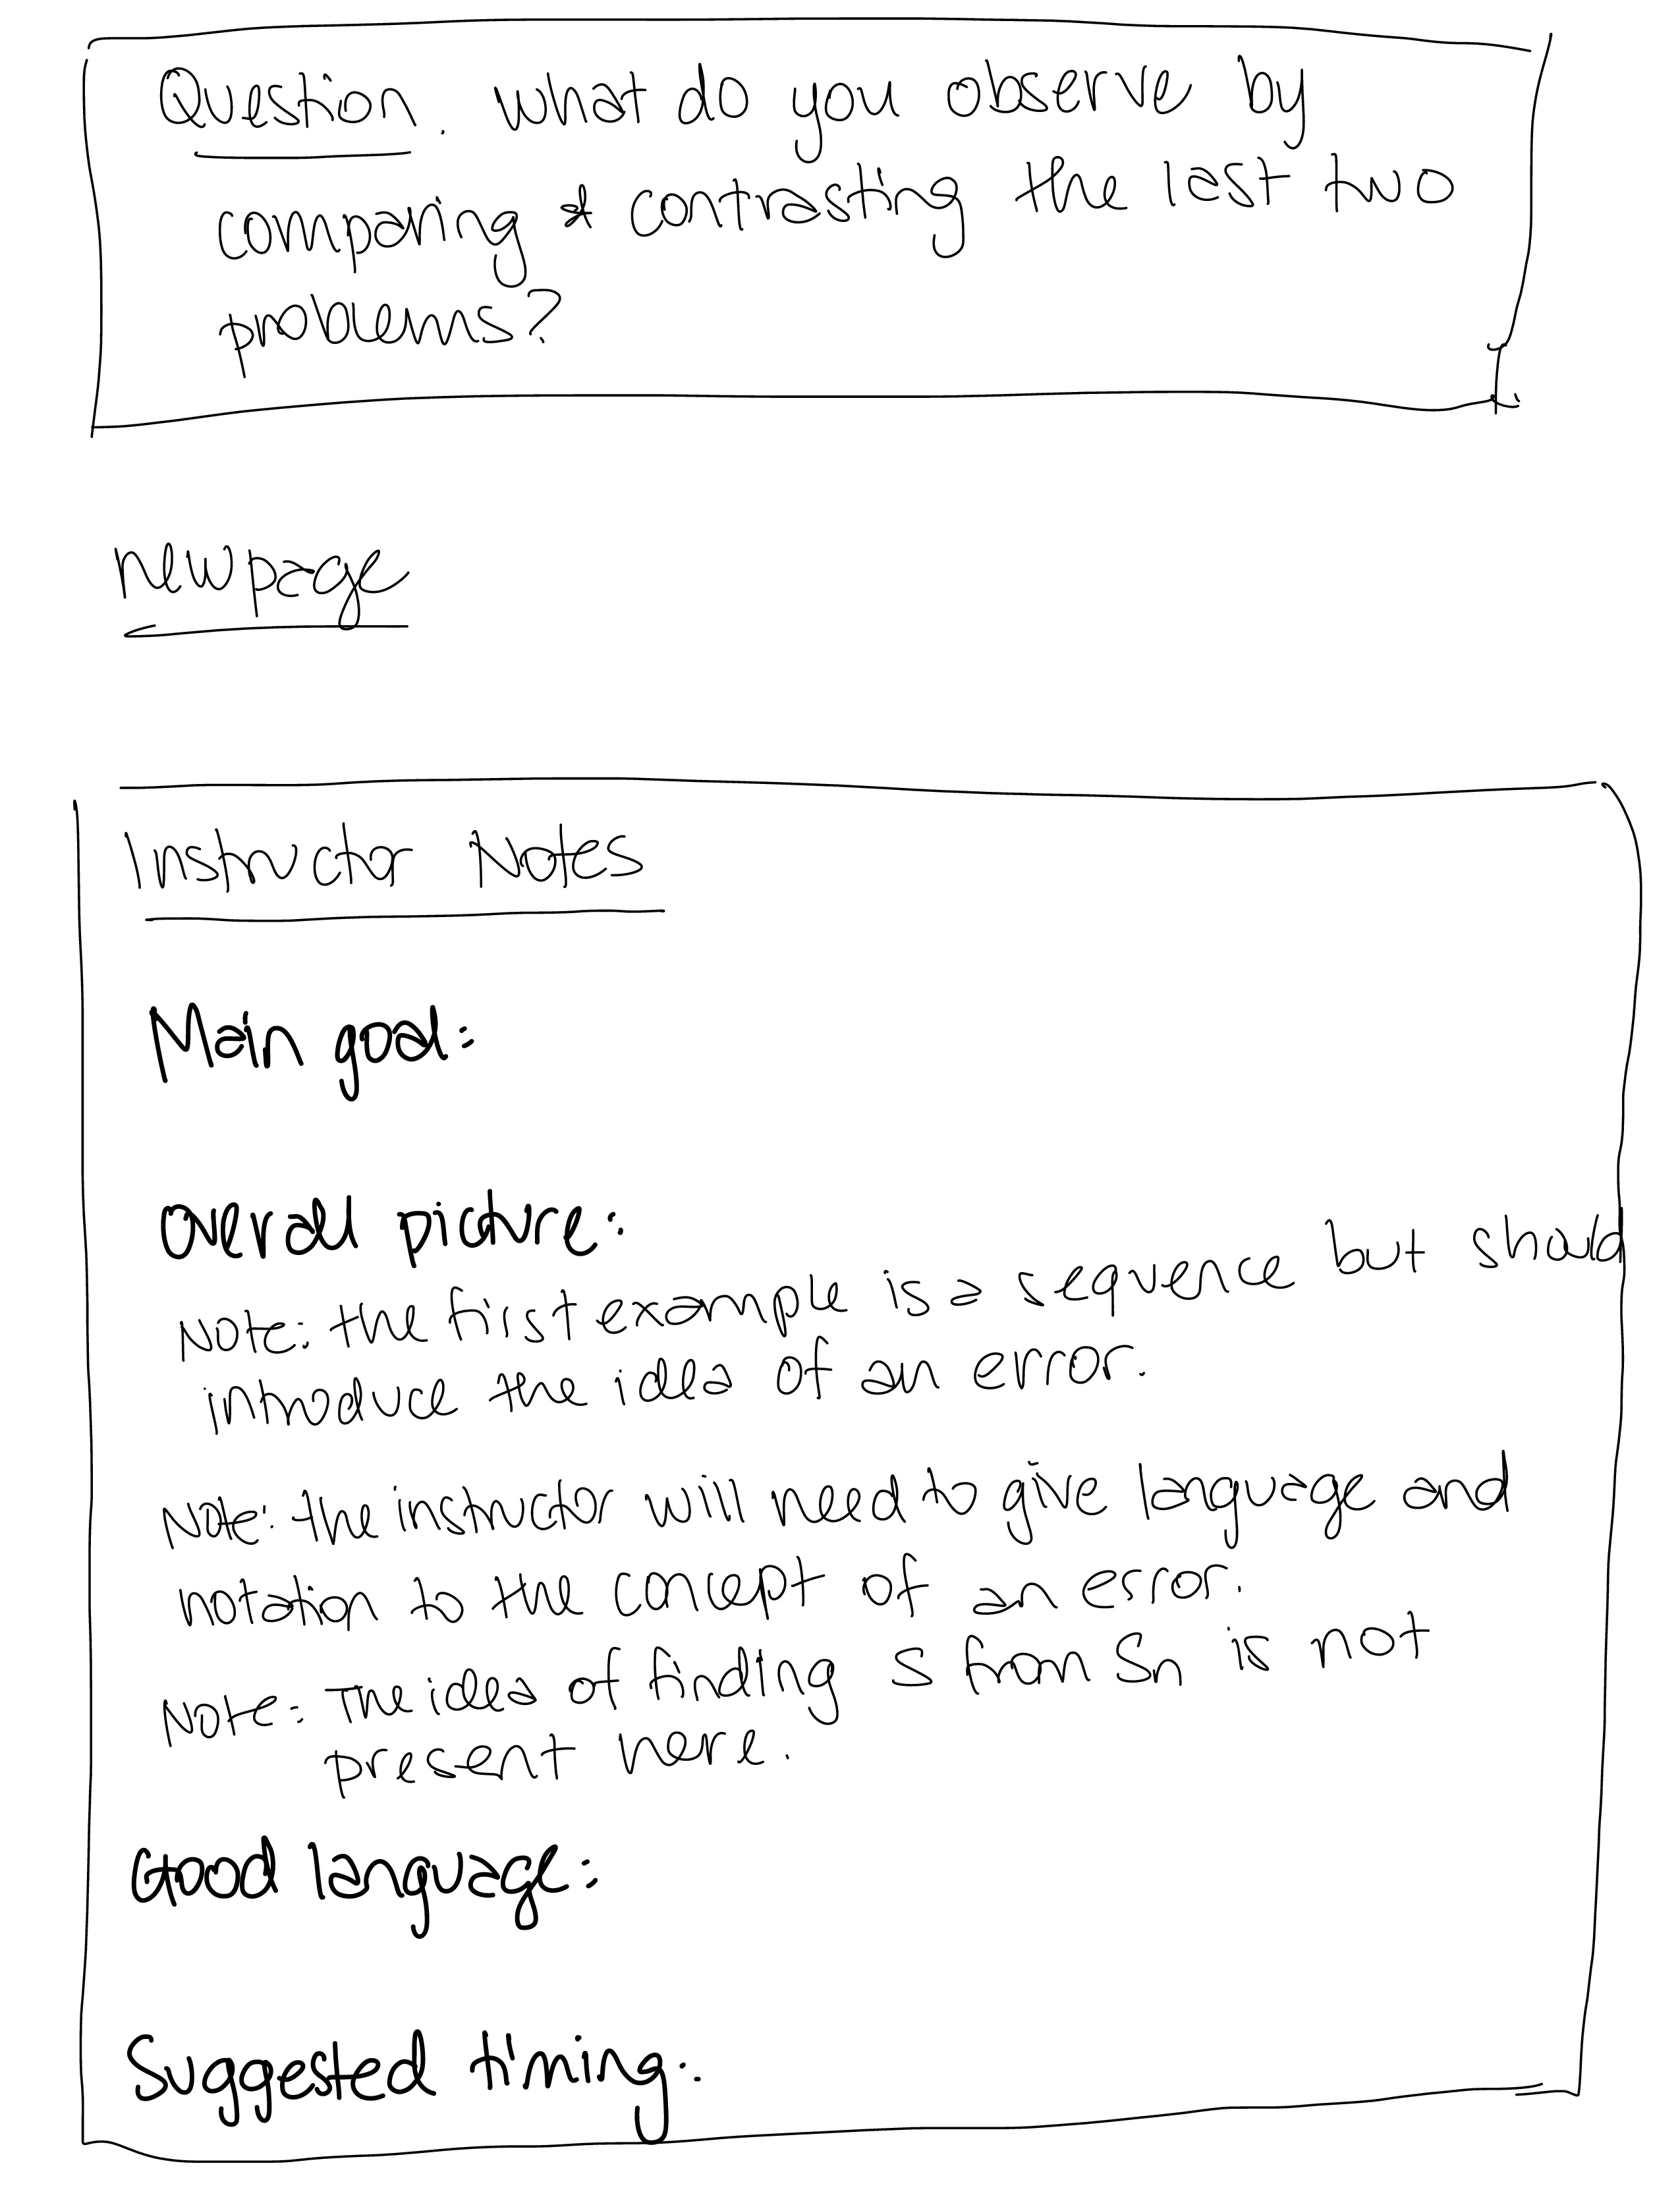 Question. What do you observe by
comparing & contrasting the last two
problems?
Newpage
Instructor Notes
Main goal:
Overall picture:
Note: the first example is a sequence but should
introduce the idea of an error.
Note: the instructor will need to give language and
notation to the concept of an error.
Note: The idea of finding S from Sn is not
present here.
Good language:
Suggested timing: